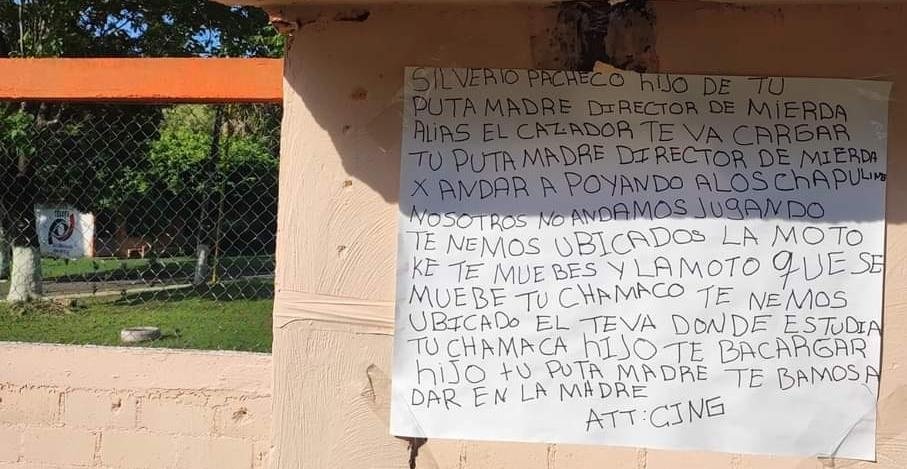 SILVERIO PACHECO HIJO DE TU
PUTA MADRE DIRECTOR DE MIERDA
ALIAS EL CAZADOR TE VA CARGAR
TU PUTA MADRE DIRECTOR DE MIERDA
X ANDAR A POYANDO ALOS CHAPULINES
NOSOTROS NO ANDAMOS JUGANDO
TE NEMOS UBICADOS LA MOTO
KE TE MUEBES Y LA MOTO QUE SE
MUEBE TU CHAMACO TE NEMOS
UBICADO EL TEVA DONDE ESTUDIA
TU CHAMACA HIJO TE BACARGAR
HIJO tU PUTA MADRE TE BAMOS A
DAR EN LA MADRE
ATT: CJNG